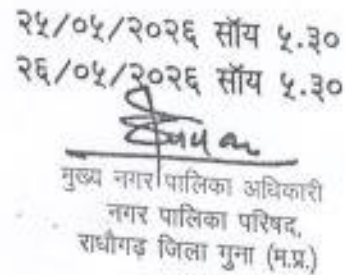 २५/०५/२०२६ सॉय ५.३०
२६/०५/२०२६ सॉय ५.३०
मुख्य नगर पालिका अधिकारी
नगर पालिका परिषद,
राधौगढ़ जिला गुना (म.प्र.)